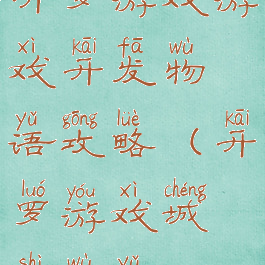 xì kāi fā wù
戏开发物
yǔ gōng lüè kāi
语攻略（开
luó yóu xì chéng
罗游戏城
shì wù yǔ